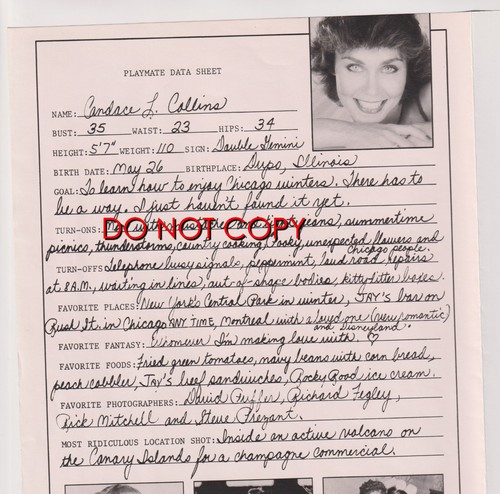 PLAYMATE DATA SHEET
NAME: Candace L. Collins
BUST: 35 WAIST: 23 HIPS: 34
HEIGHT: 5'7" WEIGHT: 110 SIGN: Double Gemini
BIRTH DATE: May 26 BIRTHPLACE: Dupo, Illinois
GOAL: To learn how to enjoy Chicago winters. There has to
be a way. I just haven't found it yet.
TURN-ONS: jeans, summertime
DO NOT COPY
picnics, thunderstorms, country cooking, unexpected flowers and
Chicago people.
TURN-OFFS: Telephone busy signals, peppermint, loud road repairs
at 8 A.M., waiting in lines, out-of-shape bodies, kitty litter boxes.
FAVORITE PLACES: New York's Central Park in winter, JAY's bar on
Rush St. in Chicago ANY TIME, Montreal with a loved one (very romantic)
and Disneyland.
FAVORITE FANTASY: Whomever I'm making love with. ♡
FAVORITE FOODS: Fried green tomatoes, navy beans with corn bread,
peach cobbler, Jay's beef sandwiches, Rocky Road ice cream.
FAVORITE PHOTOGRAPHERS: David Richard Fegley,
Rick Mitchell and Steve
MOST RIDICULOUS LOCATION SHOT: Inside an active volcano on
the Canary Islands for a champagne commercial.